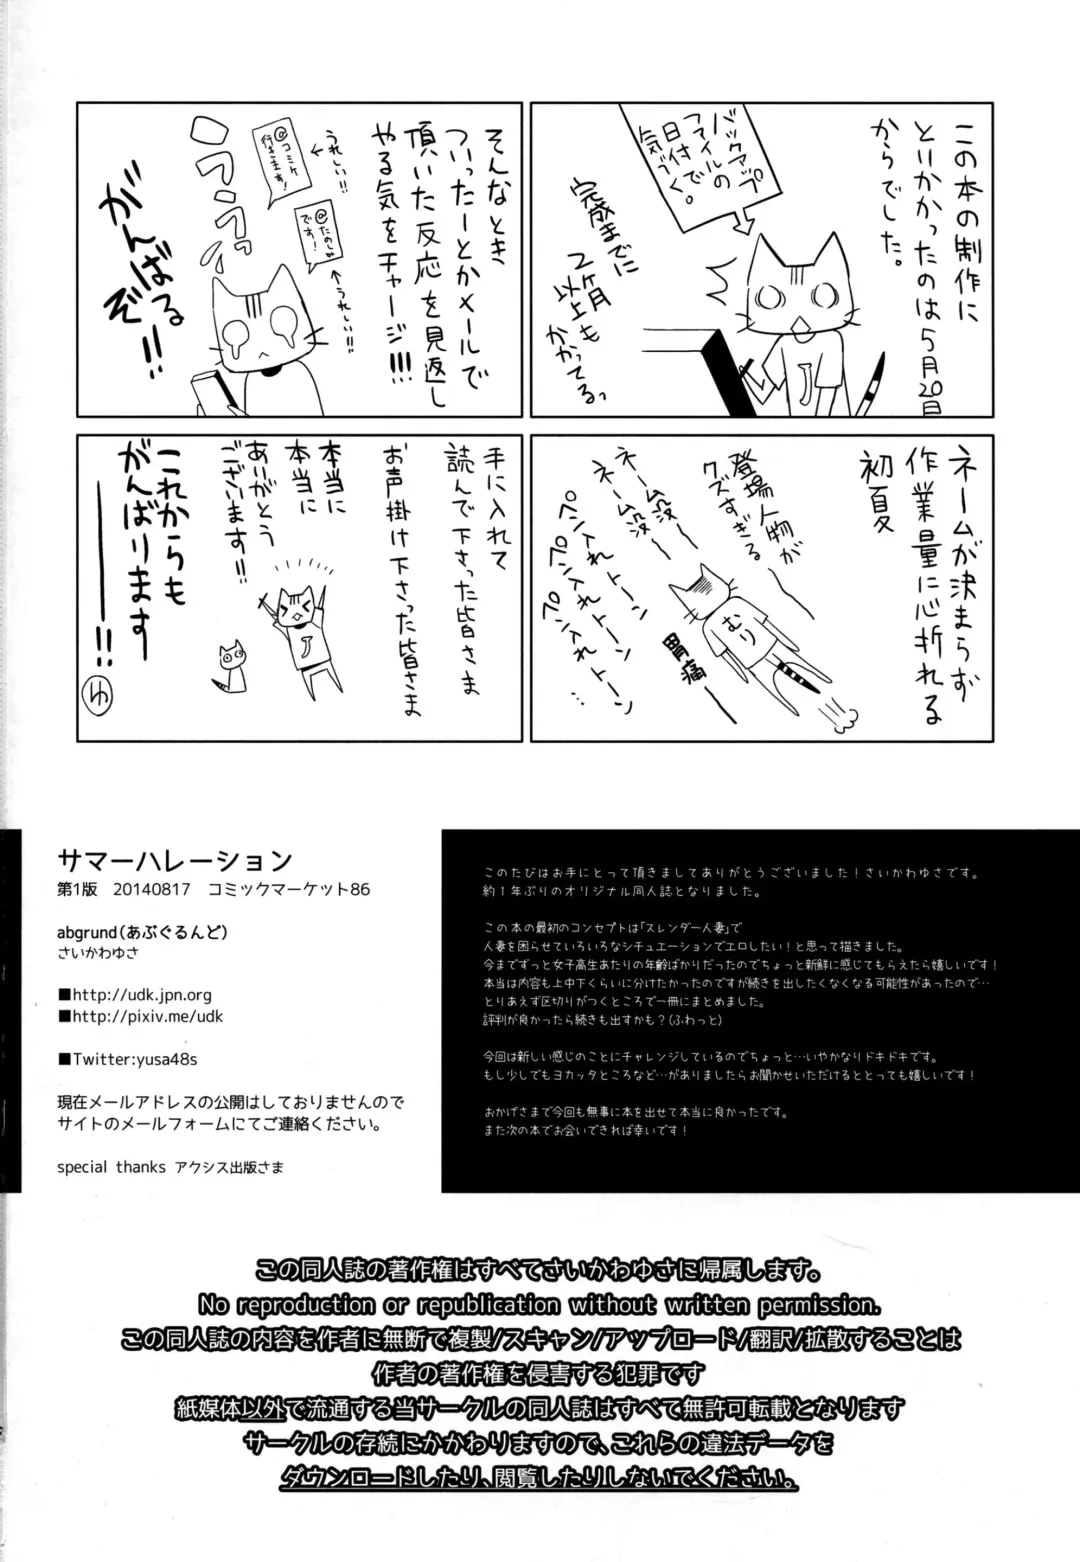 この本の制作に
とりかかったのは5月20日
からでした。
バックアップ
ファイルの
日付で
気づく。
完成までに
2ヶ月
以上も
かかってる。
そんなとき
ついったーとかメールで
頂いた反応を見返し
やる気をチャージ!!!
うれしい!!
@コミケ
行きます!
@たのしみ
です!
うれしい!!
うううっ
がんばる
ぞ!!
ネームが決まらず
作業量に心折れる
初夏
登場人物が
クズすぎる
ネーム没ー
ネーム没ー
ペン入れトーン
ペン入れトーン
ペン入れトーン…
むり
胃痛ー
手に入れて
読んで下さった皆さま
お声掛け下さった皆さま
本当に
本当に
ありがとう
ございます!!
これからも
がんばります
ーー!!
ゆ
サマーハレーション
第1版 20140817 コミックマーケット86
abgrund(あぶぐるんど)
さいかわゆさ
■http://udk.jpn.org
■http://pixiv.me/udk
■Twitter:yusa48s
現在メールアドレスの公開はしておりませんので
サイトのメールフォームにてご連絡ください。
special thanks アクシス出版さま
このたびはお手にとって頂きましてありがとうございました!さいかわゆさです。
約1年ぶりのオリジナル同人誌となりました。
この本の最初のコンセプトは「スレンダー人妻」で
人妻を困らせていろいろなシチュエーションでエロしたい!と思って描きました。
今までずっと女子高生あたりの年齢ばかりだったのでちょっと新鮮に感じてもらえたら嬉しいです!
本当は内容も上中下くらいに分けたかったのですが続きを出したくなくなる可能性があったので…
とりあえず区切りがつくところで一冊にまとめました。
評判が良かったら続きも出すかも?(ふわっと)
今回は新しい感じのことにチャレンジしているのでちょっと…いやかなりドキドキです。
もし少しでもヨカッタところなど…がありましたらお聞かせいただけるととっても嬉しいです!
おかげさまで今回も無事に本を出せて本当に良かったです。
また次の本でお会いできれば幸いです!
この同人誌の著作権はすべてさいかわゆさに帰属します。
No reproduction or republication without written permission.
この同人誌の内容を作者に無断で複製/スキャン/アップロード/翻訳/拡散することは
作者の著作権を侵害する犯罪です
紙媒体以外で流通する当サークルの同人誌はすべて無許可転載となります
サークルの存続にかかわりますので、これらの違法データを
ダウンロードしたり、閲覧したりしないでください。